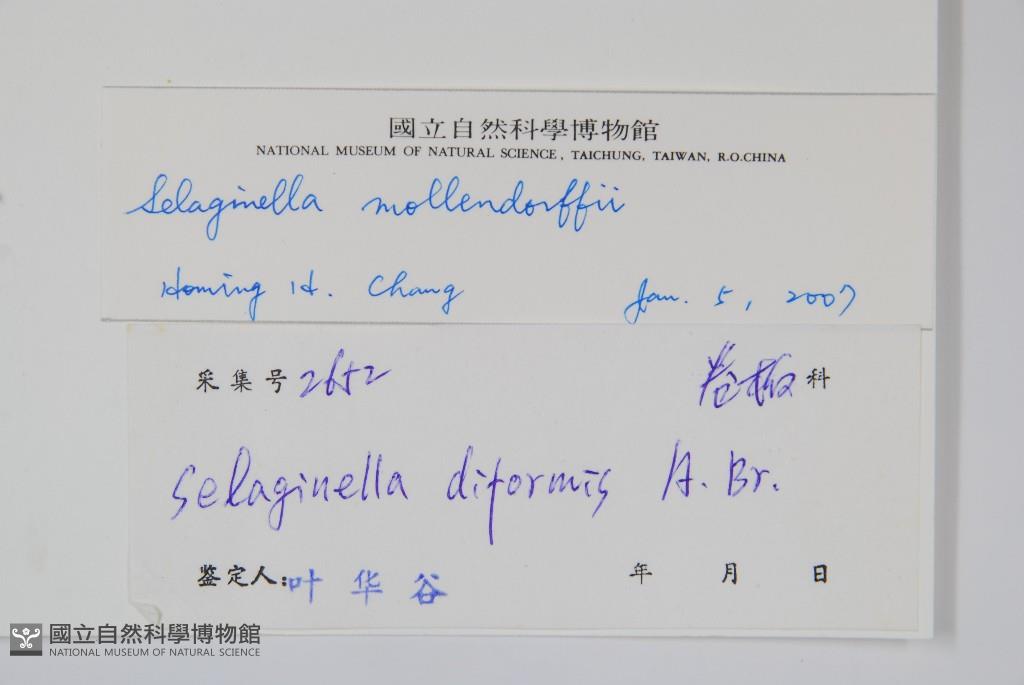 國立自然科學博物館
NATIONAL MUSEUM OF NATURAL SCIENCE, TAICHUNG, TAIWAN, R.O.CHINA
Selaginella mollendorffii
Homing H. Chang Jan. 5, 2007
采集号 2652 卷柏科
Selaginella diformis A. Br.
鉴定人:叶华谷 年 月 日
國立自然科學博物館
NATIONAL MUSEUM OF NATURAL SCIENCE